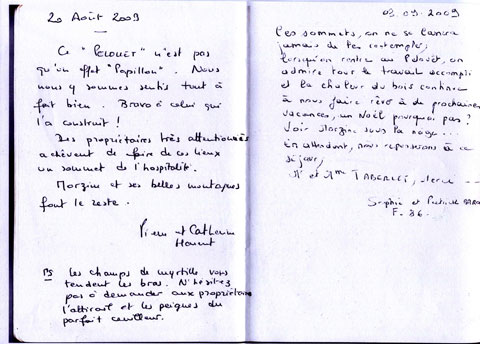 20 Août 2009
Ce "PELOUET" n'est pas
qu'un effet "Papillon". Nous
nous y sommes sentis tout à
fait bien. Bravo à celui qui
l'a construit !
Des propriétaires très attentionnés
achèvent de faire de ces lieux
un sommet de l'hospitalité.
Morzine et ses belles montagnes
font le reste.
Pierre et Catherine
PS Les champs de myrtille vous
tendent les bras. N'hésitez
pas à demander aux propriétaires
l'attirail et les peignes du
parfait cueilleur.
03.09.2009
Les sommets, on ne se lassera
jamais de les contempler,
lorsqu'on rentre au Pelouët, on
admire tout le travail accompli
et la chaleur du bois continue
à nous faire rêver à de prochaines
vacances, un Noël pourquoi pas ?
Voir Morzine sous la neige...
En attendant, nous repensons à ce
séjour,
Mr et Mme TABERLET, Merci
Sophie et Patrick
F. 86.